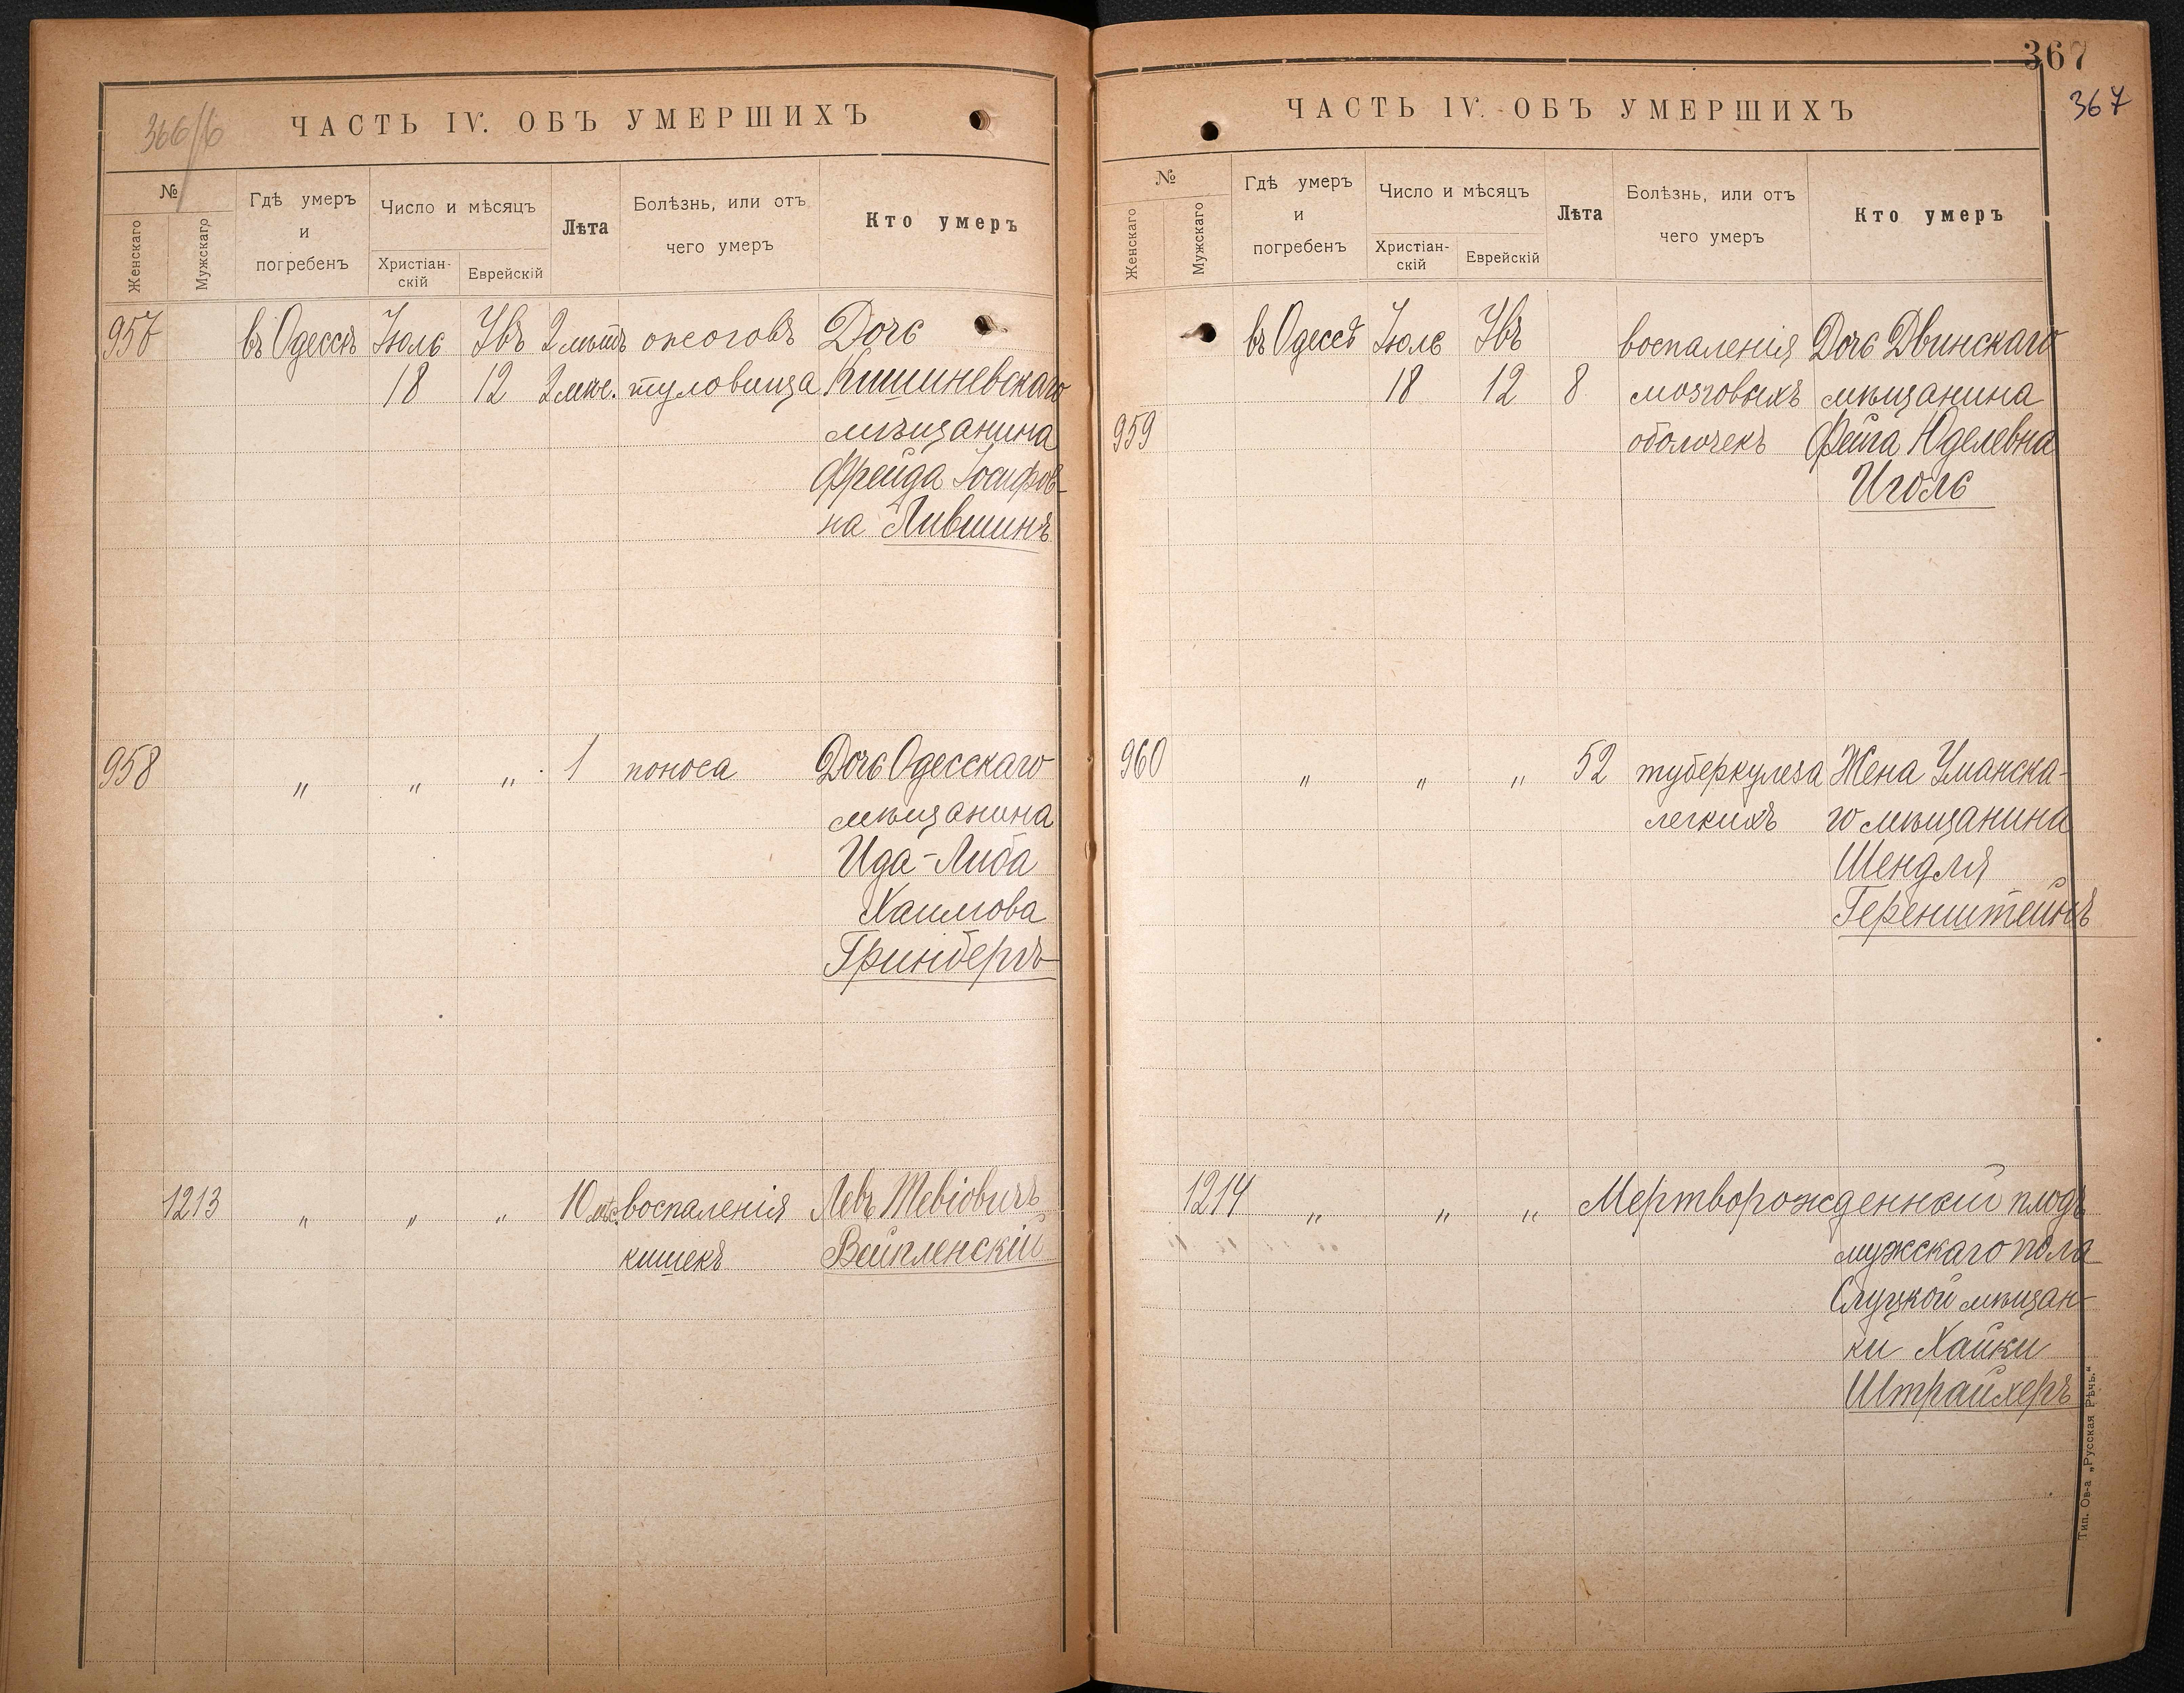 366/б
ЧАСТЬ IV. ОБЪ УМЕРШИХЪ
№
Женскаго
Мужскаго
Гдѣ умеръ
и
погребенъ
Число и мѣсяцъ
Христіан-
скій
Еврейскій
Лѣта
Болѣзнь, или отъ
чего умеръ
Кто умеръ
957 въ Одессѣ Іюль Увъ 2 лѣтъ ожоговъ Дочь
18 12 2 мѣс. туловища Кишиневскаго
мѣщанина
Фрейда Іосифов-
на Лившинъ
958 " " " 1 поноса Дочь Одесскаго
мѣщанина
Ида-Либа
Хаимова
Гринбергъ
1213 " " " 10 мѣс. воспаленія Левъ Тевіовичъ
кишекъ Вейпленскій
367
367
ЧАСТЬ IV. ОБЪ УМЕРШИХЪ
№
Женскаго
Мужскаго
Гдѣ умеръ
и
погребенъ
Число и мѣсяцъ
Христіан-
скій
Еврейскій
Лѣта
Болѣзнь, или отъ
чего умеръ
Кто умеръ
въ Одессѣ Іюль Увъ воспаленія Дочь Двинскаго
18 12 8 мозговыхъ мѣщанина
959 оболочекъ Фейга Юделевна
Иголь
960 " " " 52 туберкулеза Жена Уманска-
легкихъ го мѣщанина
Шендля
Геренштейнъ
1214 " " " Мертворожденный плодъ
мужскаго пола
Слуцкой мѣщан-
ки Хайки
Штрайхеръ
Тип. Ов-а „Русская Рѣчь.“